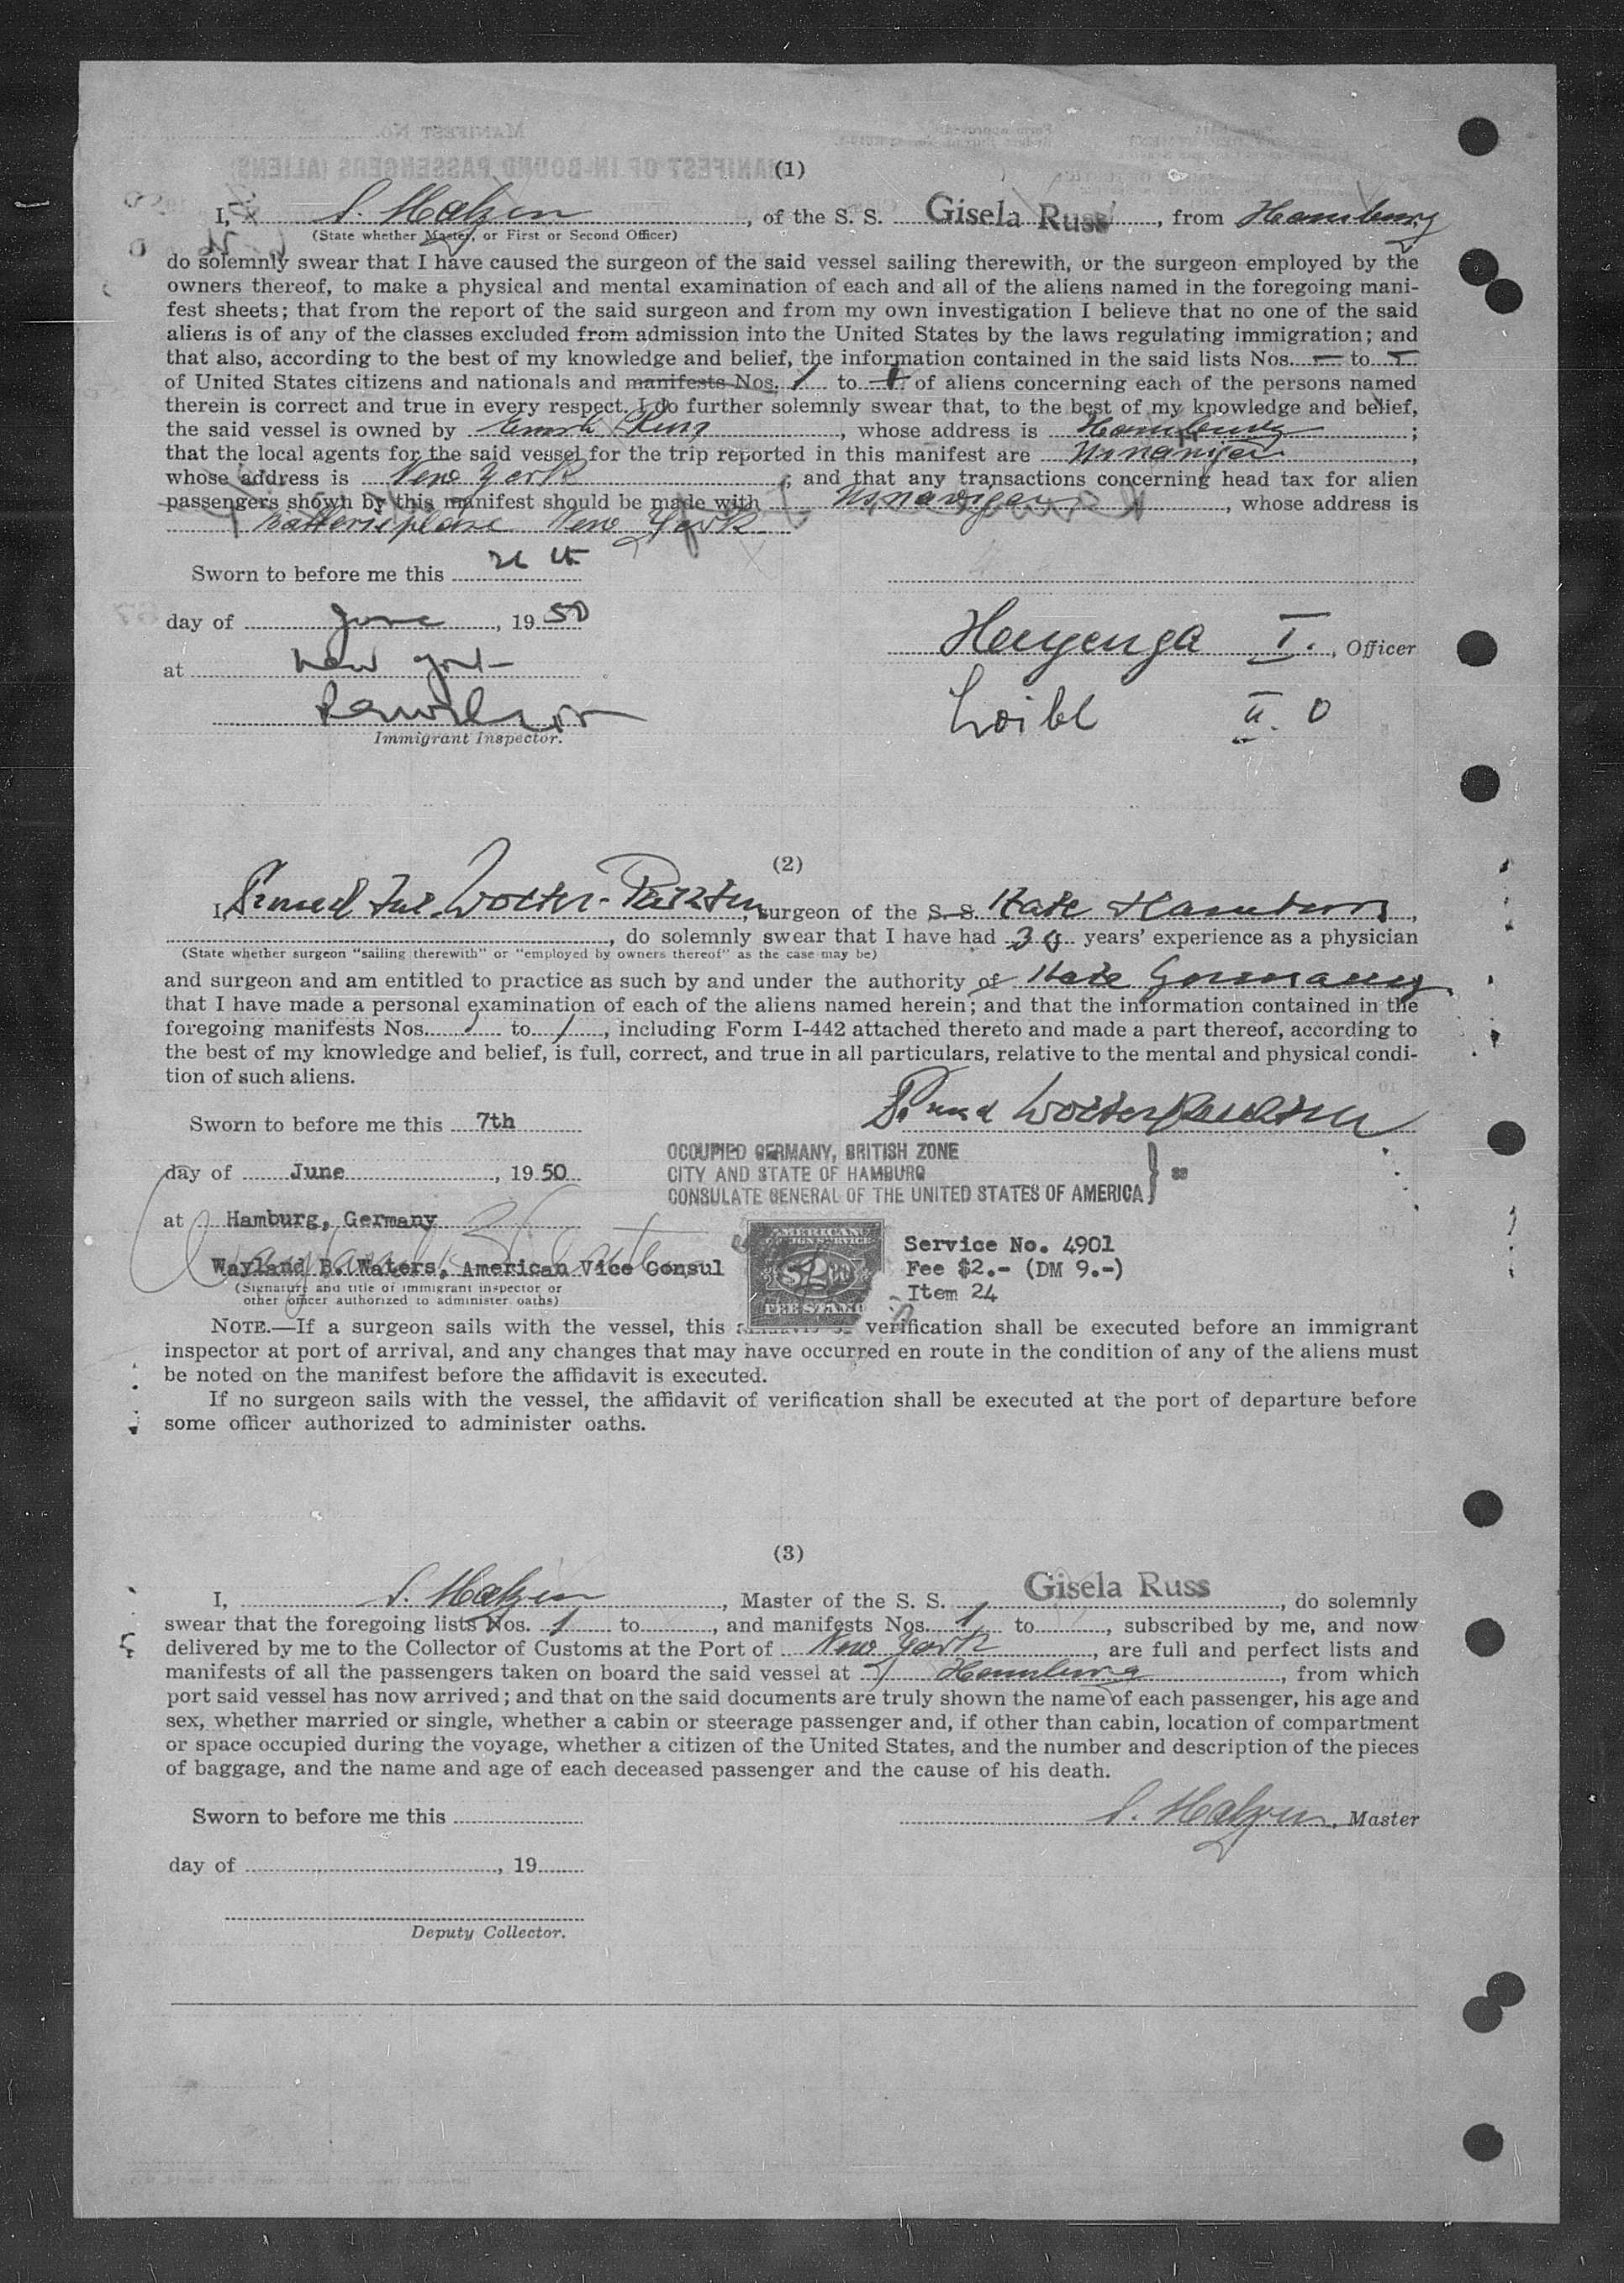 (1)
I, , of the S. S. Gisela Russ, from Hamburg
(State whether Master, or First or Second Officer)
do solemnly swear that I have caused the surgeon of the said vessel sailing therewith, or the surgeon employed by the
owners thereof, to make a physical and mental examination of each and all of the aliens named in the foregoing mani-
fest sheets; that from the report of the said surgeon and from my own investigation I believe that no one of the said
aliens is of any of the classes excluded from admission into the United States by the laws regulating immigration; and
that also, according to the best of my knowledge and belief, the information contained in the said lists Nos. — to —
of United States citizens and nationals and manifests Nos. 1 to 1 of aliens concerning each of the persons named
therein is correct and true in every respect. I do further solemnly swear that, to the best of my knowledge and belief,
the said vessel is owned by , whose address is Hamburg ;
that the local agents for the said vessel for the trip reported in this manifest are Usnaviger ,
whose address is New York ; and that any transactions concerning head tax for alien
passengers shown by this manifest should be made with Usnaviger , whose address is
New York
Sworn to before me this
day of June , 19 50
at New York
Hayenga I. , Officer
Loibl II. O
Immigrant Inspector.
(2)
I, , surgeon of the S. S. State Hamburg ,
, do solemnly swear that I have had years' experience as a physician
(State whether surgeon "sailing therewith" or "employed by owners thereof" as the case may be)
and surgeon and am entitled to practice as such by and under the authority of State Germany
that I have made a personal examination of each of the aliens named herein; and that the information contained in the
foregoing manifests Nos. 1 to 1 , including Form I-442 attached thereto and made a part thereof, according to
the best of my knowledge and belief, is full, correct, and true in all particulars, relative to the mental and physical condi-
tion of such aliens.
Sworn to before me this 7th
day of June , 19 50
OCCUPIED GERMANY, BRITISH ZONE
CITY AND STATE OF HAMBURG
CONSULATE GENERAL OF THE UNITED STATES OF AMERICA } ss
at Hamburg, Germany
Wayland B. Waters
Wayland B. Waters, American Vice Consul
(Signature and title of immigrant inspector or
other officer authorized to administer oaths)
AMERICAN
FOREIGN SERVICE
$2
FEE STAMP
Service No. 4901
Fee $2.- (DM 9.-)
Item 24
NOTE.—If a surgeon sails with the vessel, this verification shall be executed before an immigrant
inspector at port of arrival, and any changes that may have occurred en route in the condition of any of the aliens must
be noted on the manifest before the affidavit is executed.
If no surgeon sails with the vessel, the affidavit of verification shall be executed at the port of departure before
some officer authorized to administer oaths.
(3)
I, , Master of the S. S. Gisela Russ , do solemnly
swear that the foregoing lists Nos. 1 to , and manifests Nos. 1 to , subscribed by me, and now
delivered by me to the Collector of Customs at the Port of New York , are full and perfect lists and
manifests of all the passengers taken on board the said vessel at Hamburg , from which
port said vessel has now arrived; and that on the said documents are truly shown the name of each passenger, his age and
sex, whether married or single, whether a cabin or steerage passenger and, if other than cabin, location of compartment
or space occupied during the voyage, whether a citizen of the United States, and the number and description of the pieces
of baggage, and the name and age of each deceased passenger and the cause of his death.
Sworn to before me this
, Master
day of , 19
Deputy Collector.